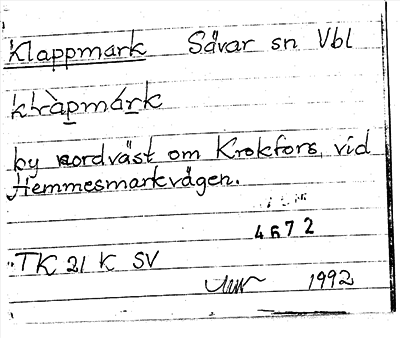 Klappmark Sävar sn Vbl
klàpmárk
by nordväst om Krokfors, vid
Hemmesmarkvägen.
4672
TK 21 K SV
1992